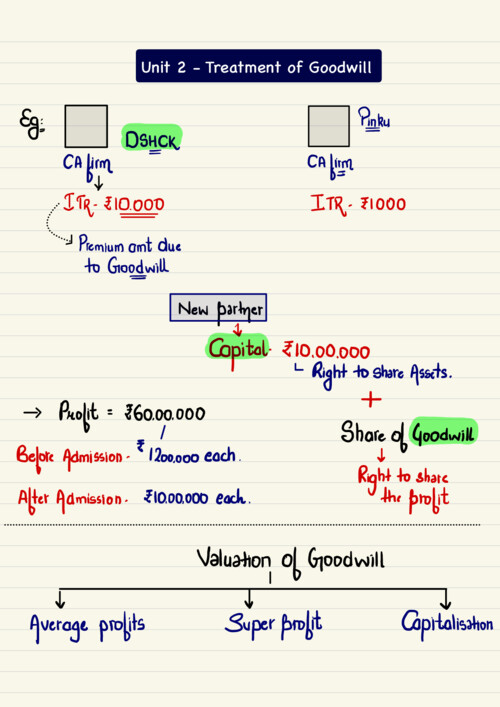 Unit 2 - Treatment of Goodwill
Eg:
DSHCK
Pinku
CA firm
CA firm
ITR- ₹10,000
ITR- ₹1000
Premium amt due
to Goodwill
New partner
Capital- ₹10,00,000
Right to share Assets.
+
→ Profit = ₹60,00,000
Share of Goodwill
Before Admission - ₹1200,000 each.
Right to share
the profit
After Admission - ₹10,00,000 each.
Valuation of Goodwill
Average profits
Super profit
Capitalisation